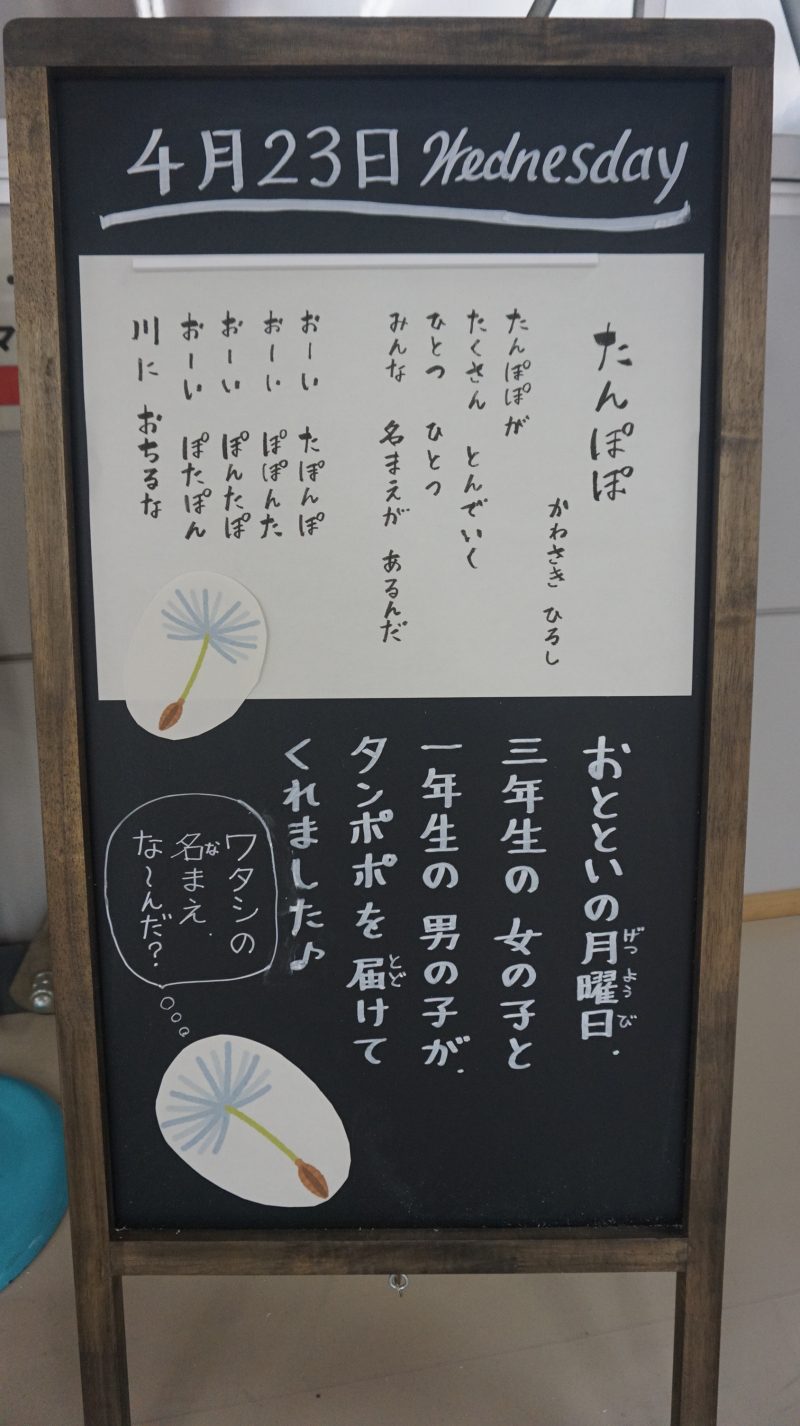 4月23日 Wednesday
たんぽぽ
かわさき ひろし
たんぽぽが
たくさん とんでいく
ひとつ ひとつ
みんな 名まえが あるんだ
おーい たぽんぽ
おーい ぽぽんた
おーい ぽんたぽ
おーい ぽたぽん
川に おちるな
おとといの月曜日.
げつ よう び
三年生の 女の子と
一年生の 男の子が.
タンポポを 届けて
とど
くれました♪
ワタシの
名まえ.
な
な〜んだ?
マ